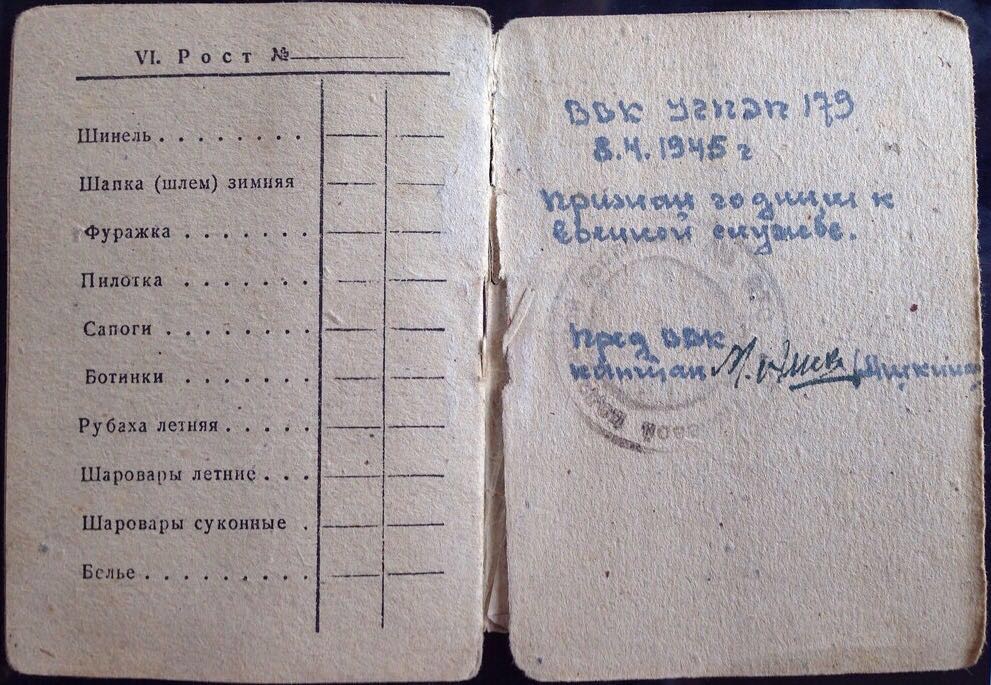 VI. Рост №
Шинель
Шапка (шлем) зимняя
Фуражка
Пилотка
Сапоги
Ботинки
Рубаха летняя
Шаровары летние
Шаровары суконные
Белье
ВВК 179
8.4.1945 г
Признан годным к
военной службе.
Пред ВВК
капитан